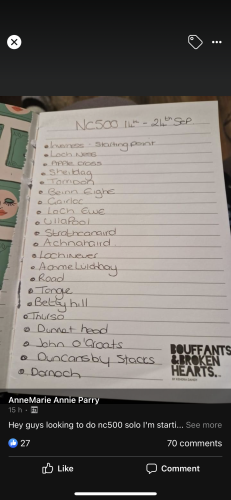 NC500 14th - 24th Sep
Inverness - Starting point
Loch Ness
Apple cross
Shieldag
Torridon
Beinn Eighe
Gairloc
Loch Ewe
Ullapool
Strathcanaird
Achnahaird
Lochinver
Road
Tongue
Bettyhill
Thurso
Dunnet head
John O'Groats
Duncansby Stacks
Dornoch
BOUFFANTS
& BROKEN
HEARTS.
AnneMarie Annie Parry
15 h ·
Hey guys looking to do nc500 solo I'm starti... See more
27
70 comments
Like
Comment